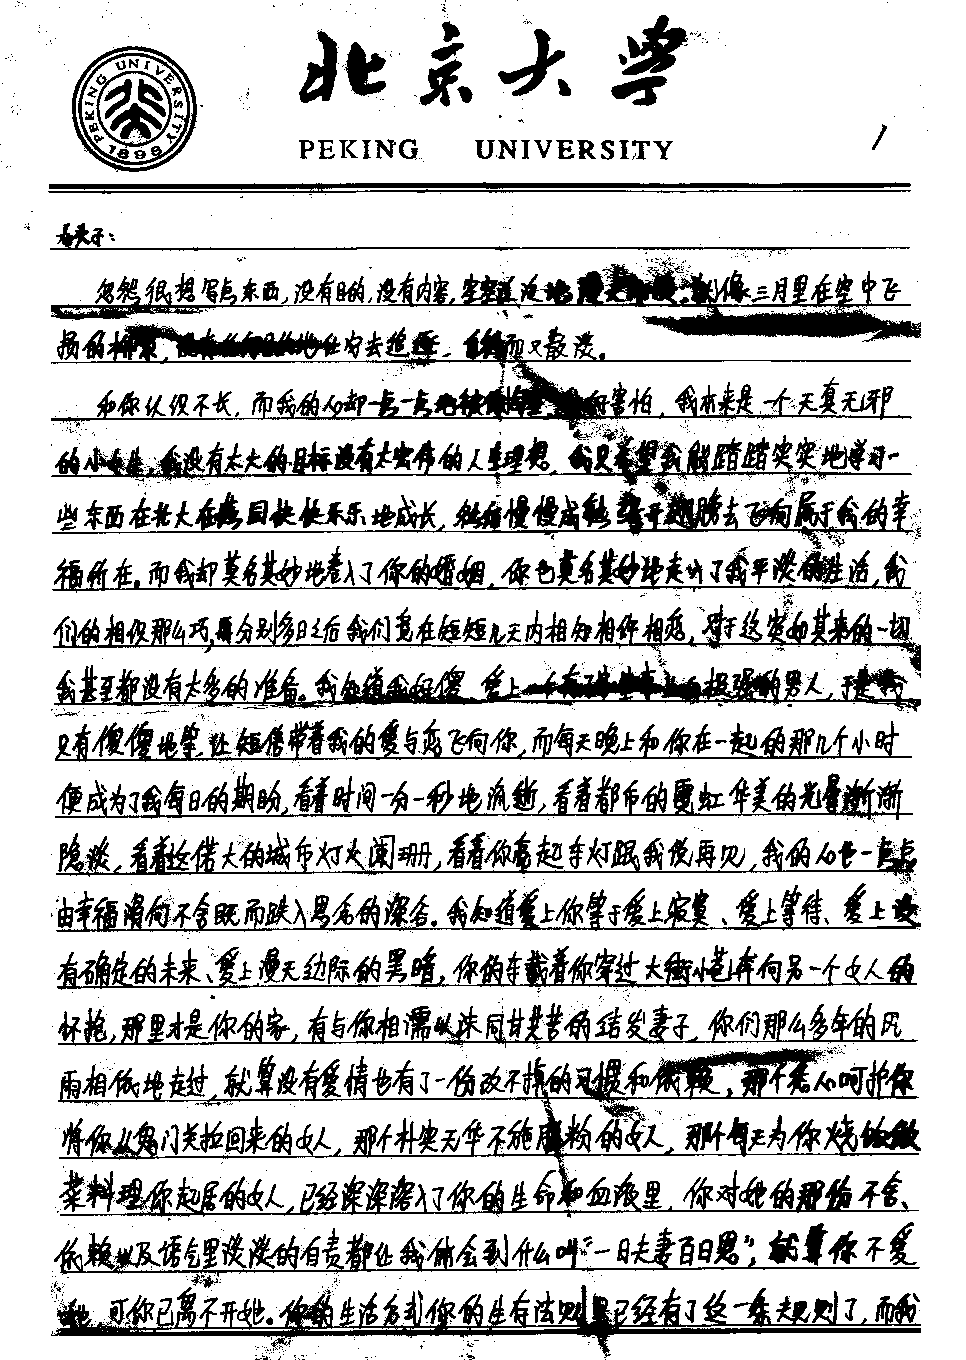 北京大学
PEKING UNIVERSITY
PEKING UNIVERSITY
1898
1
忽然很想写点东西,没有目的,没有内容,空空荡荡地,就像三月里在空中飞
损的柳絮,地任由去追逐,而又散漫。
和你认识不长,而我的心却一点一点地被害怕,我本来是一个天真无邪
的小女生,我没有太大的目标没有太宏伟的人生理想,我只希望我能踏踏实实地学习一
些东西在北大在燕园快快乐乐地成长,然后慢慢成熟展开翅膀去飞向属于我的幸
福所在。而我却莫名其妙地卷入了你的婚姻,你也莫名其妙地走出了我平淡的生活,我
们的相似那么巧,再分别多日之后我们竟在短短几天内相知相许相恋,对于这突如其来的一切
我甚至都没有太多的准备。我知道我好傻,爱上一个有了极强的男人,于是我
只有傻傻地等,让短信带着我的爱与恋飞向你,而每天晚上和你在一起的那几个小时
便成为了我每日的期盼,看着时间一分一秒地流逝,看着都市的霓虹华美的光晕渐渐
隐淡,看着这偌大的城市灯火阑珊,看着你亮起车灯跟我说再见,我的心也一点点
由幸福滑向不舍既而跌入思念的深谷。我知道爱上你等于爱上寂寞、爱上等待、爱上没
有确定的未来、爱上漫天边际的黑暗,你的车载着你穿过大街小巷奔向另一个女人的
怀抱,那里才是你的家,有与你相濡以沫同甘共苦的结发妻子,你们那么多年的风
雨相依地走过,就算没有爱情也有了一份改不掉的习惯和依赖,那个悉心呵护你
将你从鬼门关拉回来的女人,那个朴实无华不施脂粉的女人,那个每天为你烧饭做
菜料理你起居的女人,已经深深溶入了你的生命和血液里,你对她的那份不舍、
依赖以及语气里淡淡的自责都让我体会到什么叫“一日夫妻百日恩”;就算你不爱
她,可你已离不开她。你的生活方式你的生存法则里已经有了这一条规则了,而我